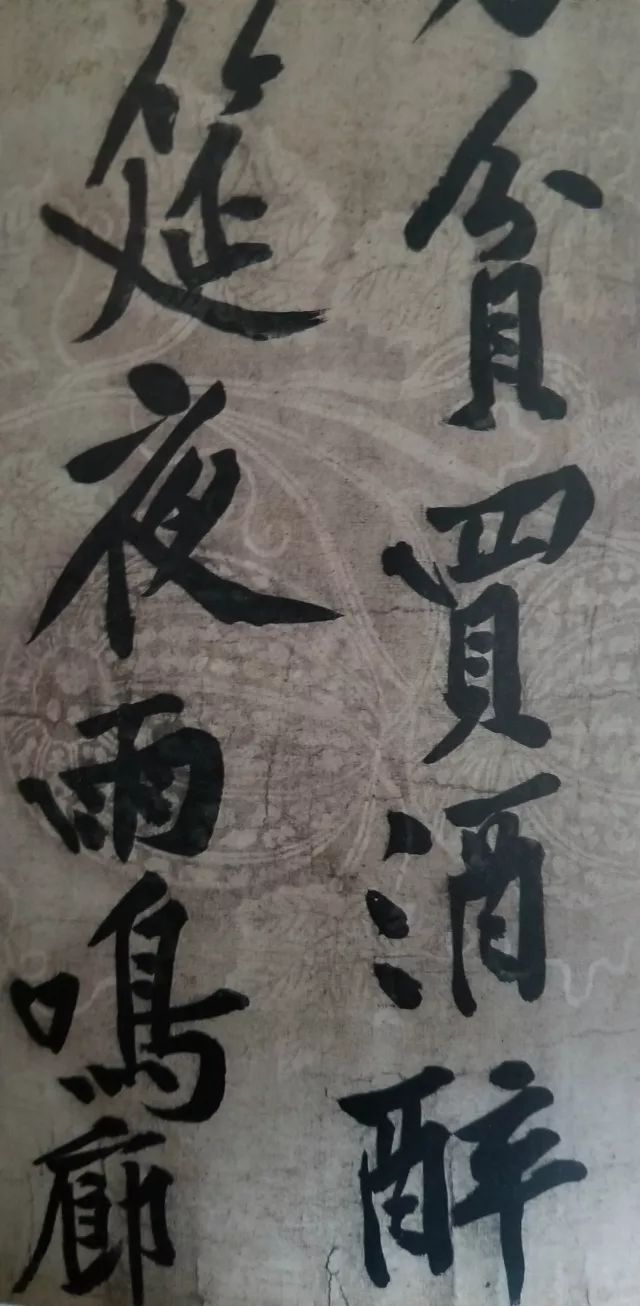 貧買酒醉
筵夜雨鳴廊